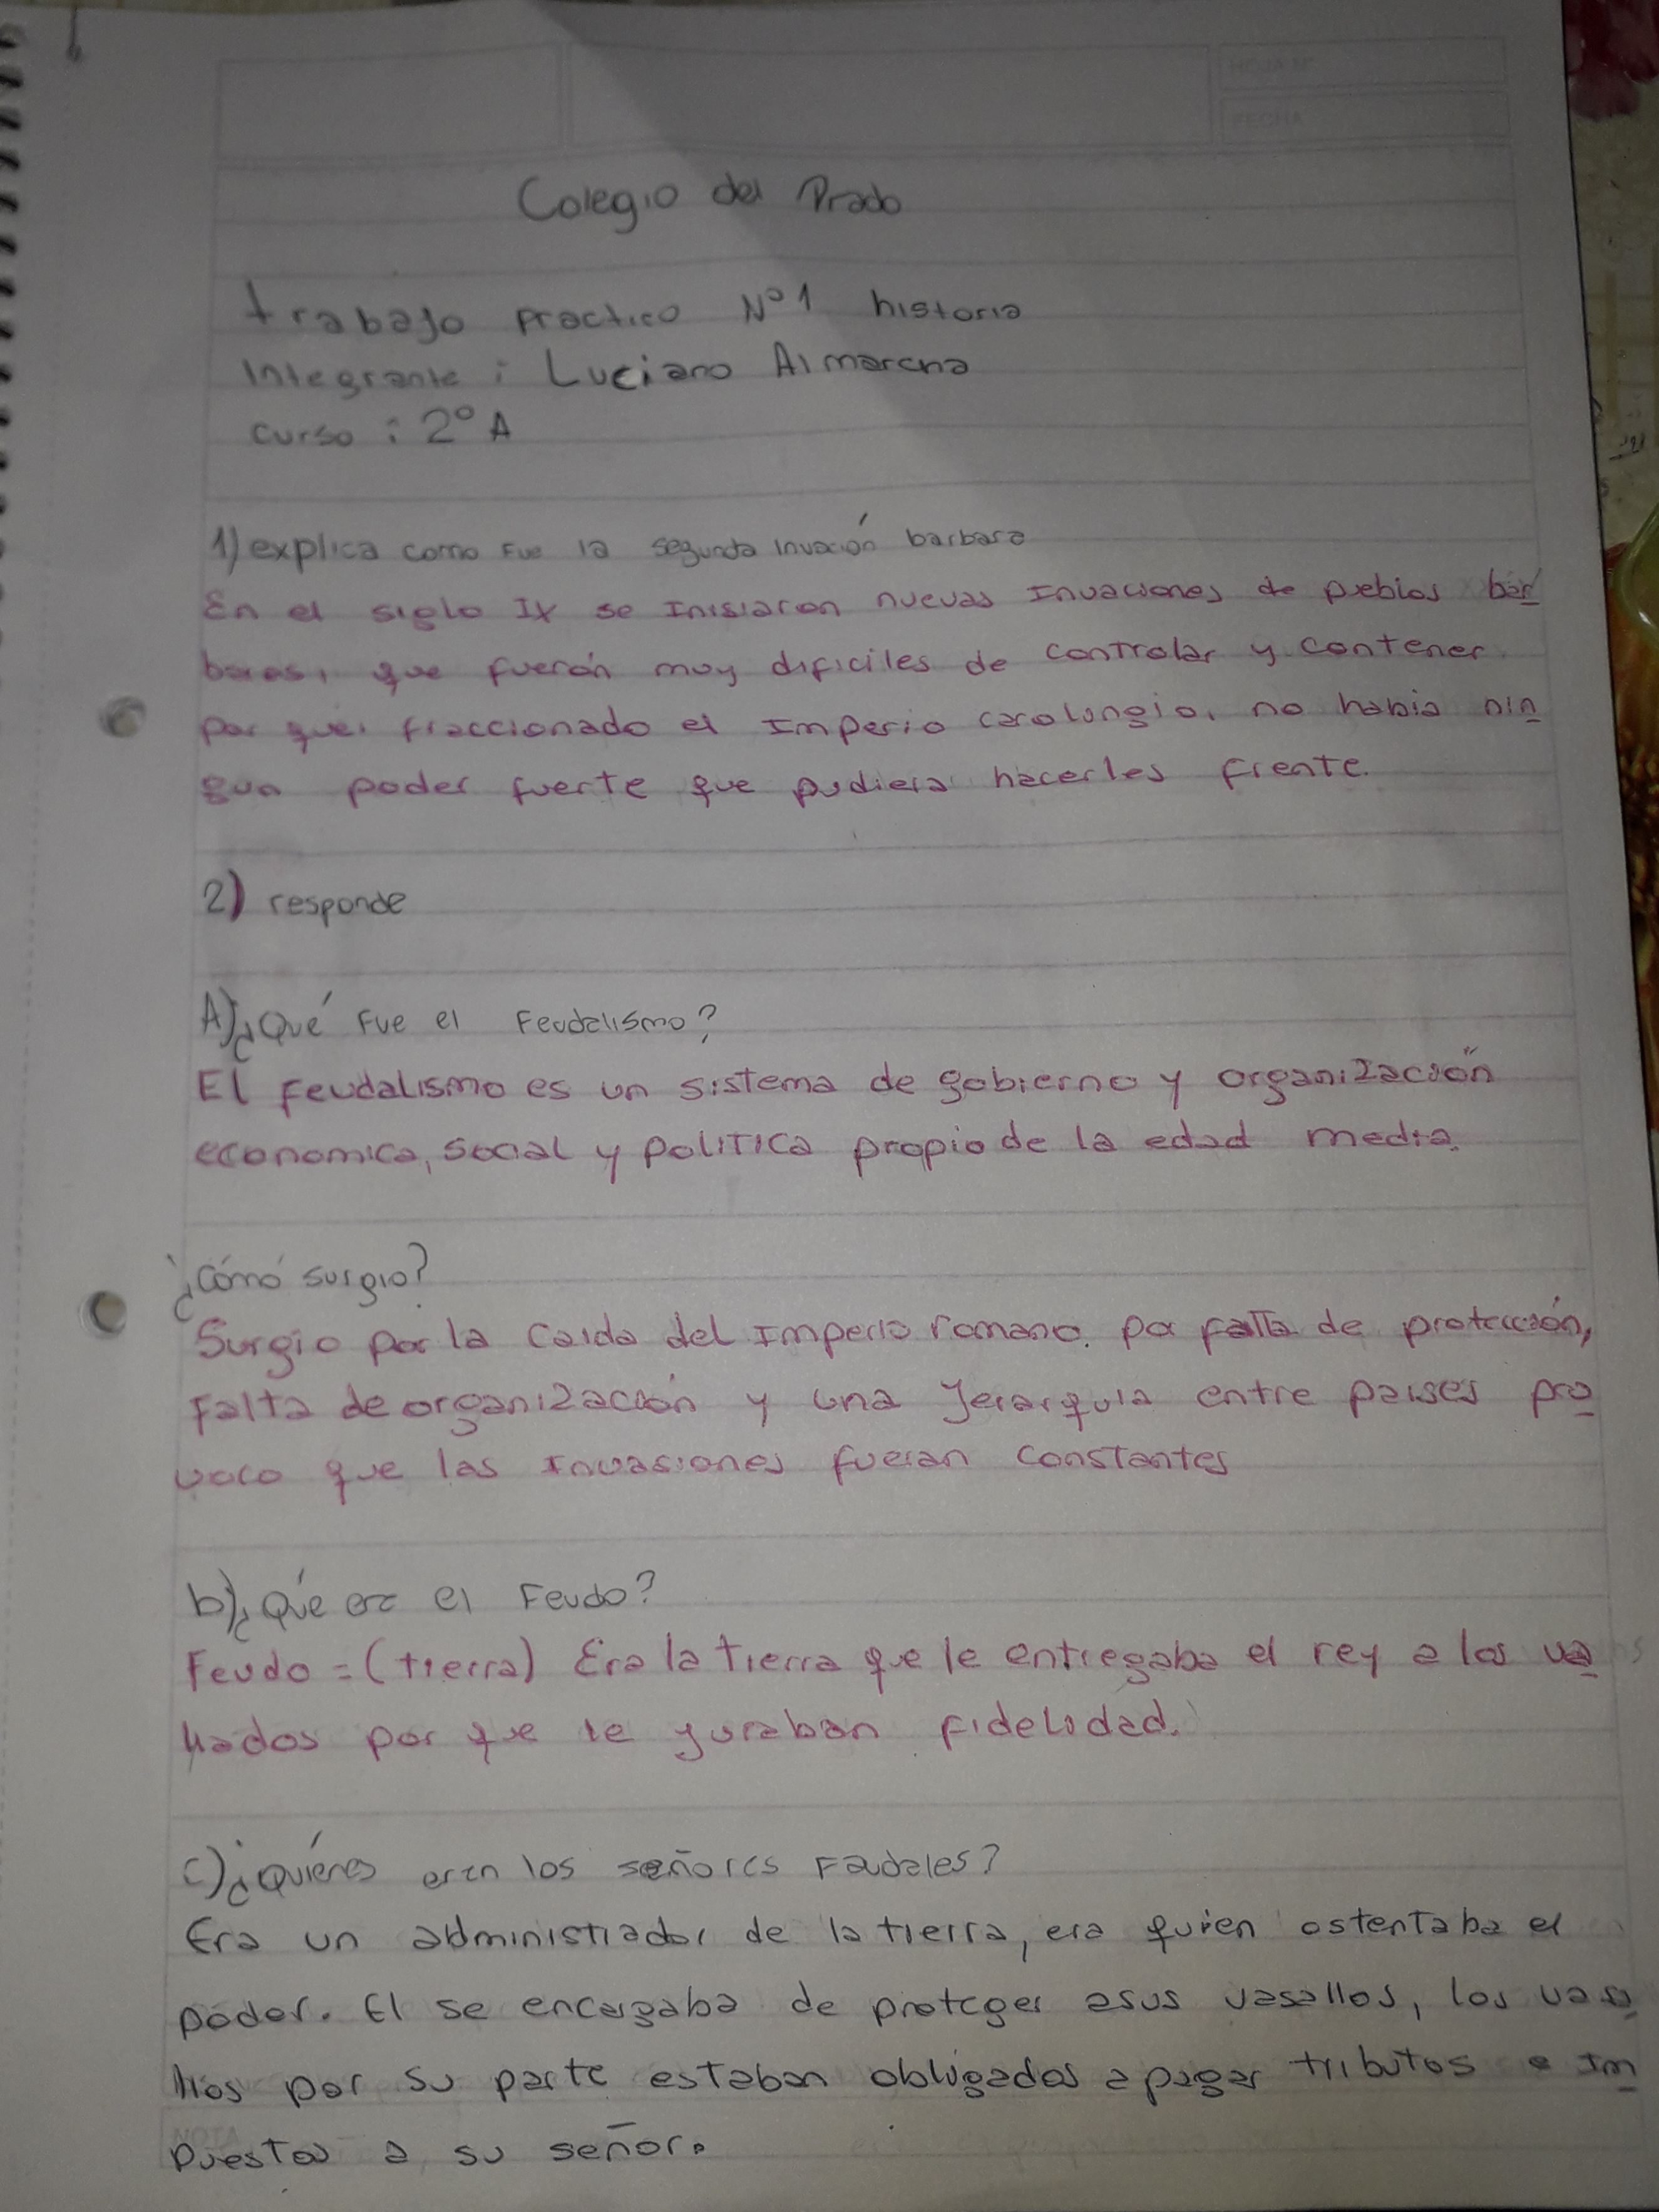 HOJA N°
FECHA
Colegio del Prado
trabajo practico N°1 historia
Integrante: Luciano Almarcha
curso: 2° A
1) explica como fue la segunda invación barbara
En el siglo IX se Inisiaron nuevas Invaciones de pueblos bar
baros, que fuerón muy dificiles de controlar y contener
por que, fraccionado el Imperio carolingio, no habia nin
gun poder fuerte que pudiera hacerles frente.
2) responde
A) ¿Qué fue el Feudalismo?
El feudalismo es un sistema de gobierno y organización
economica, social y politica propio de la edad media.
¿Cómo surgio?
Surgio por la caida del Imperio romano. por falta de protección,
falta de organización y una Jerarquia entre paises pro
voco que las Invasiones fueran constantes
b) ¿Qué era el Feudo?
Feudo = (tierra) Era la tierra que le entregaba el rey a los va
llados por que le juraban fidelidad.
c) ¿Quiénes eran los señores Faudales?
Era un administrador de la tierra, era quien ostentaba el
poder. El se encargaba de proteger asus vasallos, los vas
llos por su parte estaban obligados a pagar tributos e Im
puestos a su señor.
NOTA